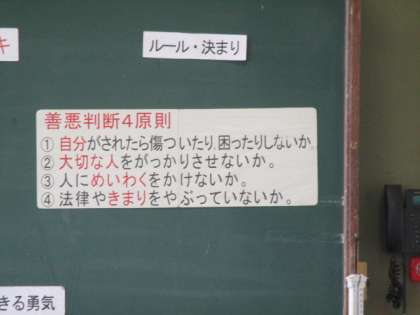 キ
ルール・決まり
善悪判断4原則
① 自分がされたら傷ついたり､困ったりしないか。
② 大切な人をがっかりさせないか。
③ 人にめいわくをかけないか。
④ 法律やきまりをやぶっていないか。
きる勇気